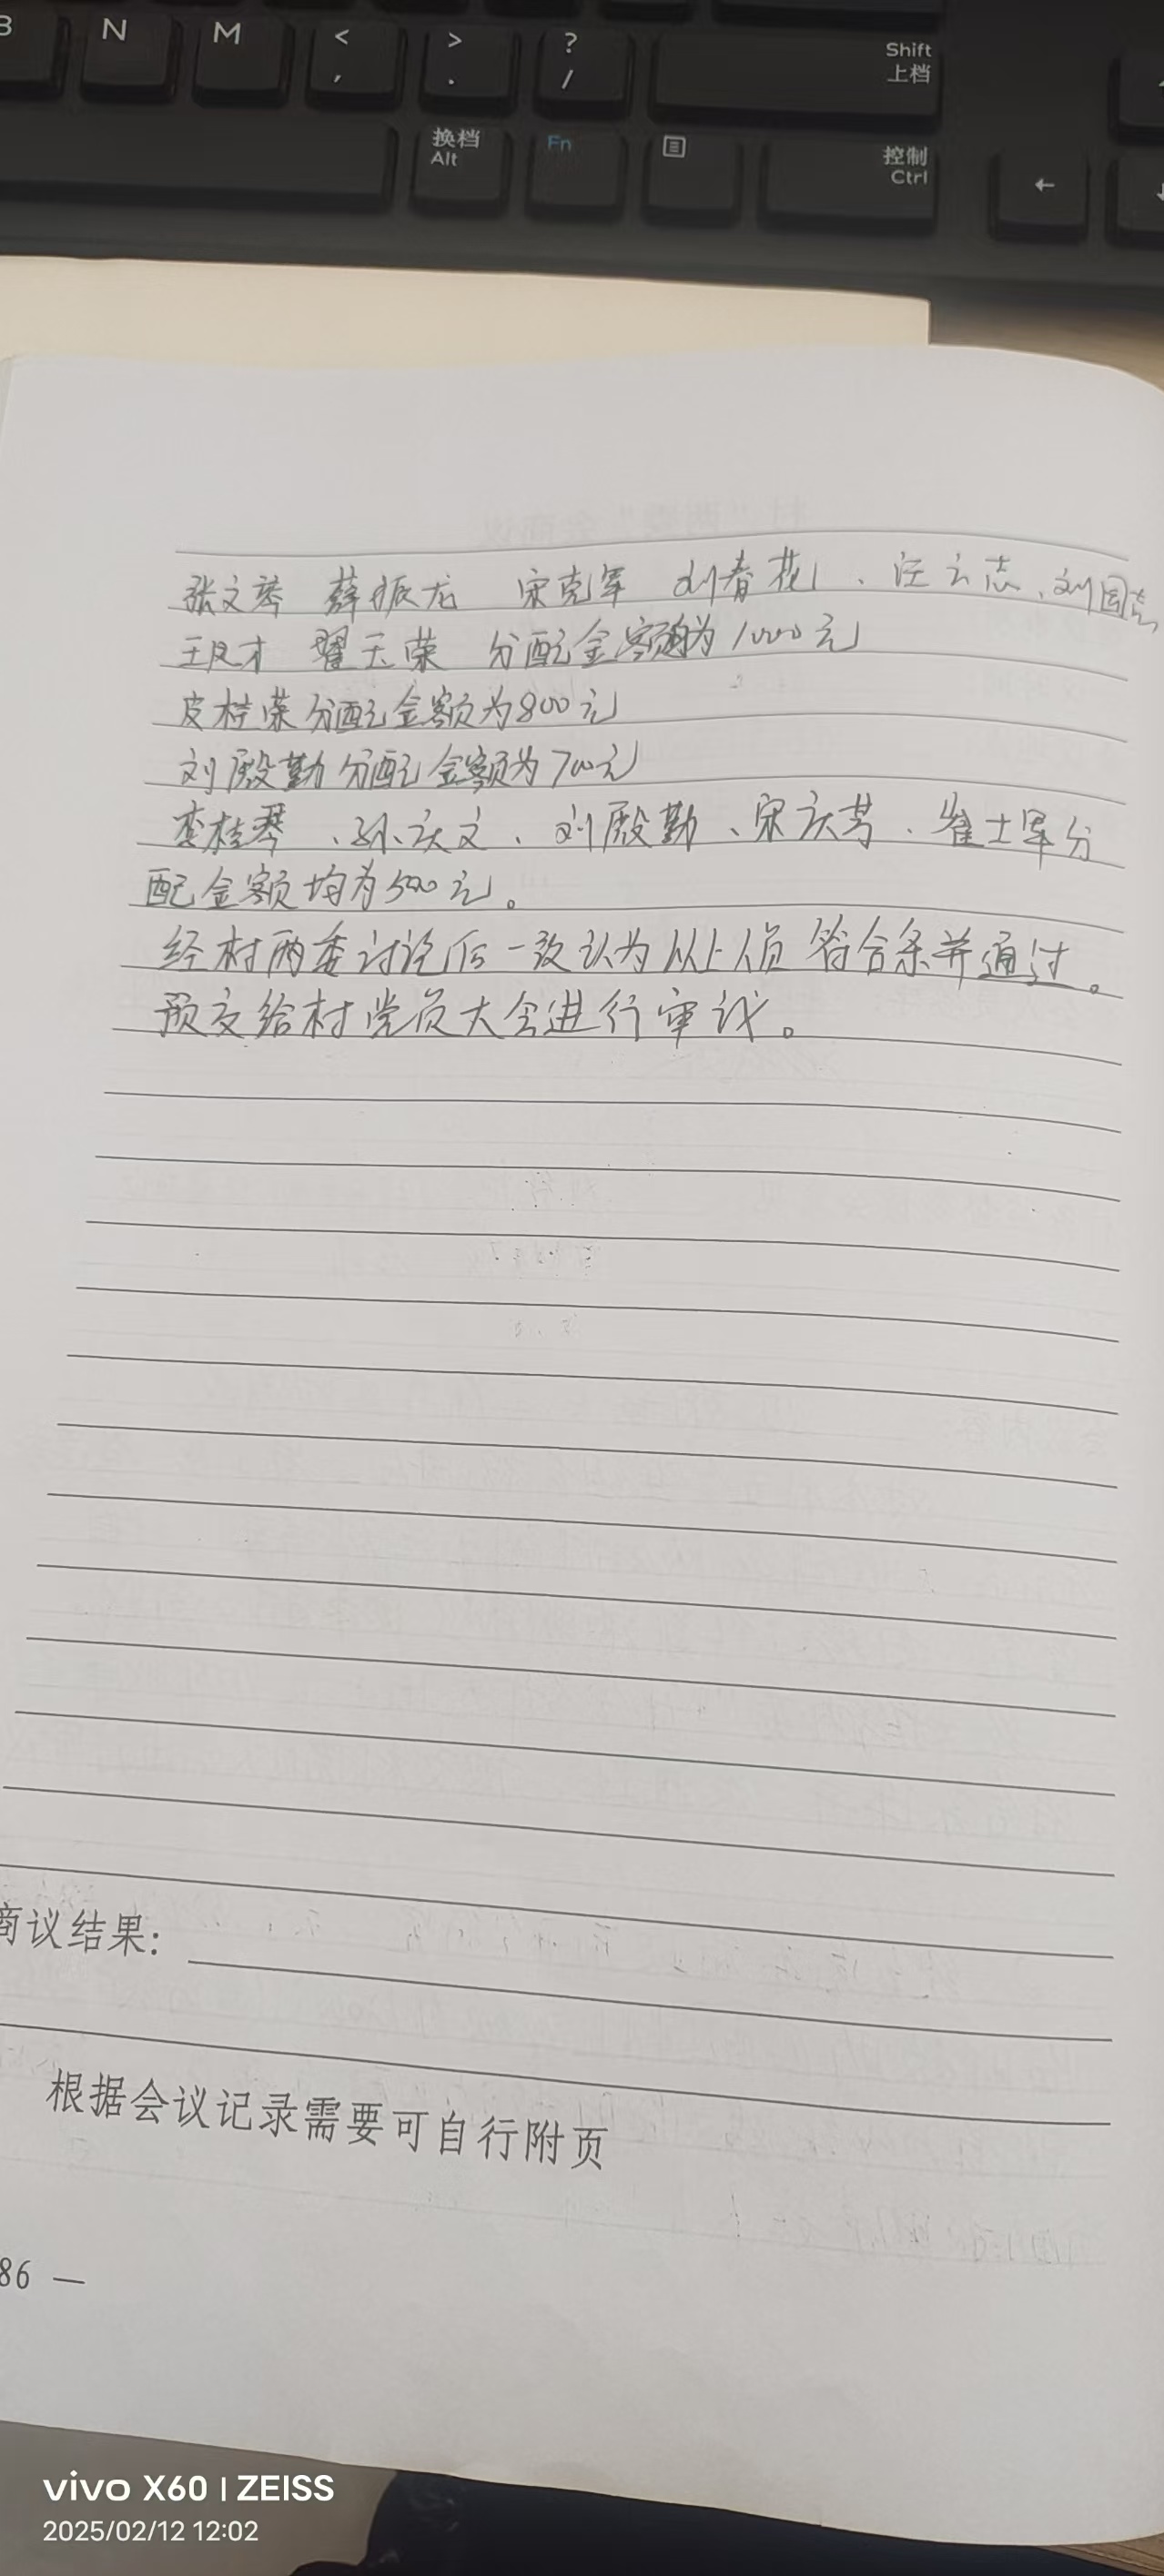 B N M < , > . ? / Shift 上档
换档 Alt Fn 控制 Ctrl ←
张文琴 薛振龙 宋克军 刘春花、汪云志、刘国志
王凤才 翟玉荣 分配金额均为1000元
皮桂荣分配金额为800元
刘殿勤分配金额为700元
栾桂琴、孙庆文、刘殿勤、宋庆芳、崔士军分
配金额均为500元。
经村两委讨论后一致认为以上人员符合条并通过。
预交给村党员大会进行审议。
商议结果:
根据会议记录需要可自行附页
86 —
vivo X60 | ZEISS
2025/02/12 12:02